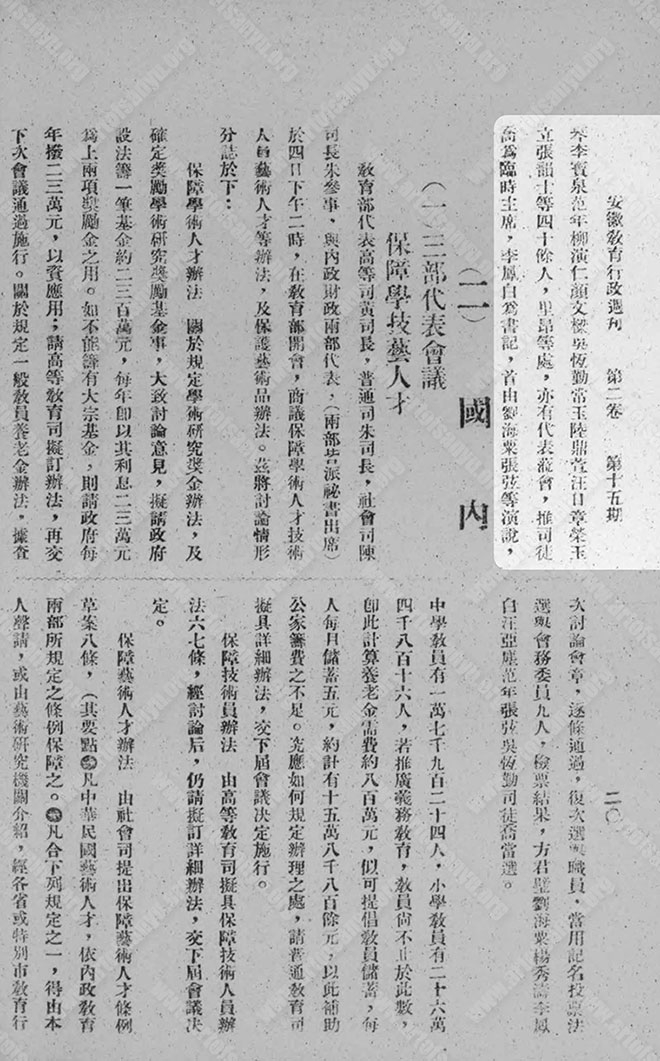 安徽敎育行政週刊　第二卷　第十五期
琴李寶泉范年柳演仁顏文樑吳恆勤常玉陸鼎萱汪日章榮玉
立張韻士等四十餘人，里昂等處，亦有代表蒞會，推司徒
喬爲臨時主席，李鳳白爲書記，首由劉海粟張弦等演說，
次討論會章，逐條通過，復次選舉職員，當用記名投票法
選舉會務委員九人，檢票結果，方君璧劉海粟楊秀濤李鳳
白汪亞塵范年張弦吳恆勤司徒喬當選。
（二）國內
（一）三部代表會議
保障學技藝人才
敎育部代表高等司黃司長，普通司朱司長，社會司陳
司長朱參事，與內政財政兩部代表，（兩部皆派祕書出席）
於四日下午二時，在敎育部開會，商議保障學術人才技術
人員藝術人才等辦法，及保護藝術品辦法。茲將討論情形
分誌於下：
保障學術人才辦法　關於規定學術研究獎金辦法，及
確定獎勵學術研究獎勵基金事，大致討論意見，擬請政府
設法籌一筆基金約二三百萬元，每年卽以其利息二三萬元
爲上兩項獎勵金之用。如不能籌有大宗基金，則請政府每
年撥二三萬元，以資應用；請高等敎育司擬訂辦法，再交
下次會議通過施行。關於規定一般敎員養老金辦法，據查
中學敎員有一萬七千九百二十四人，小學敎員有二十六萬
四千八百十六人，若推廣義務敎育，敎員尙不止於此數，
卽此計算養老金需費約八百萬元，似可提倡敎員儲蓄，每
人每月儲蓄五元，約計有十五萬八千八百餘元，以此補助
公家籌費之不足。究應如何規定辦理之處，請普通敎育司
擬具詳細辦法，交下屆會議決定施行。
保障技術員辦法　由高等敎育司擬具保障技術人員辦
法六七條，經討論后，仍請擬訂詳細辦法，交下屆會議決
定。
保障藝術人才辦法　由社會司提出保障藝術人才條例
草案八條，（其要點凡中華民國藝術人才，依內政敎育
兩部所規定之條例保障之。凡合下列規定之一，得由本
人聲請，或由藝術研究機關介紹，經各省或特別市敎育行
二〇